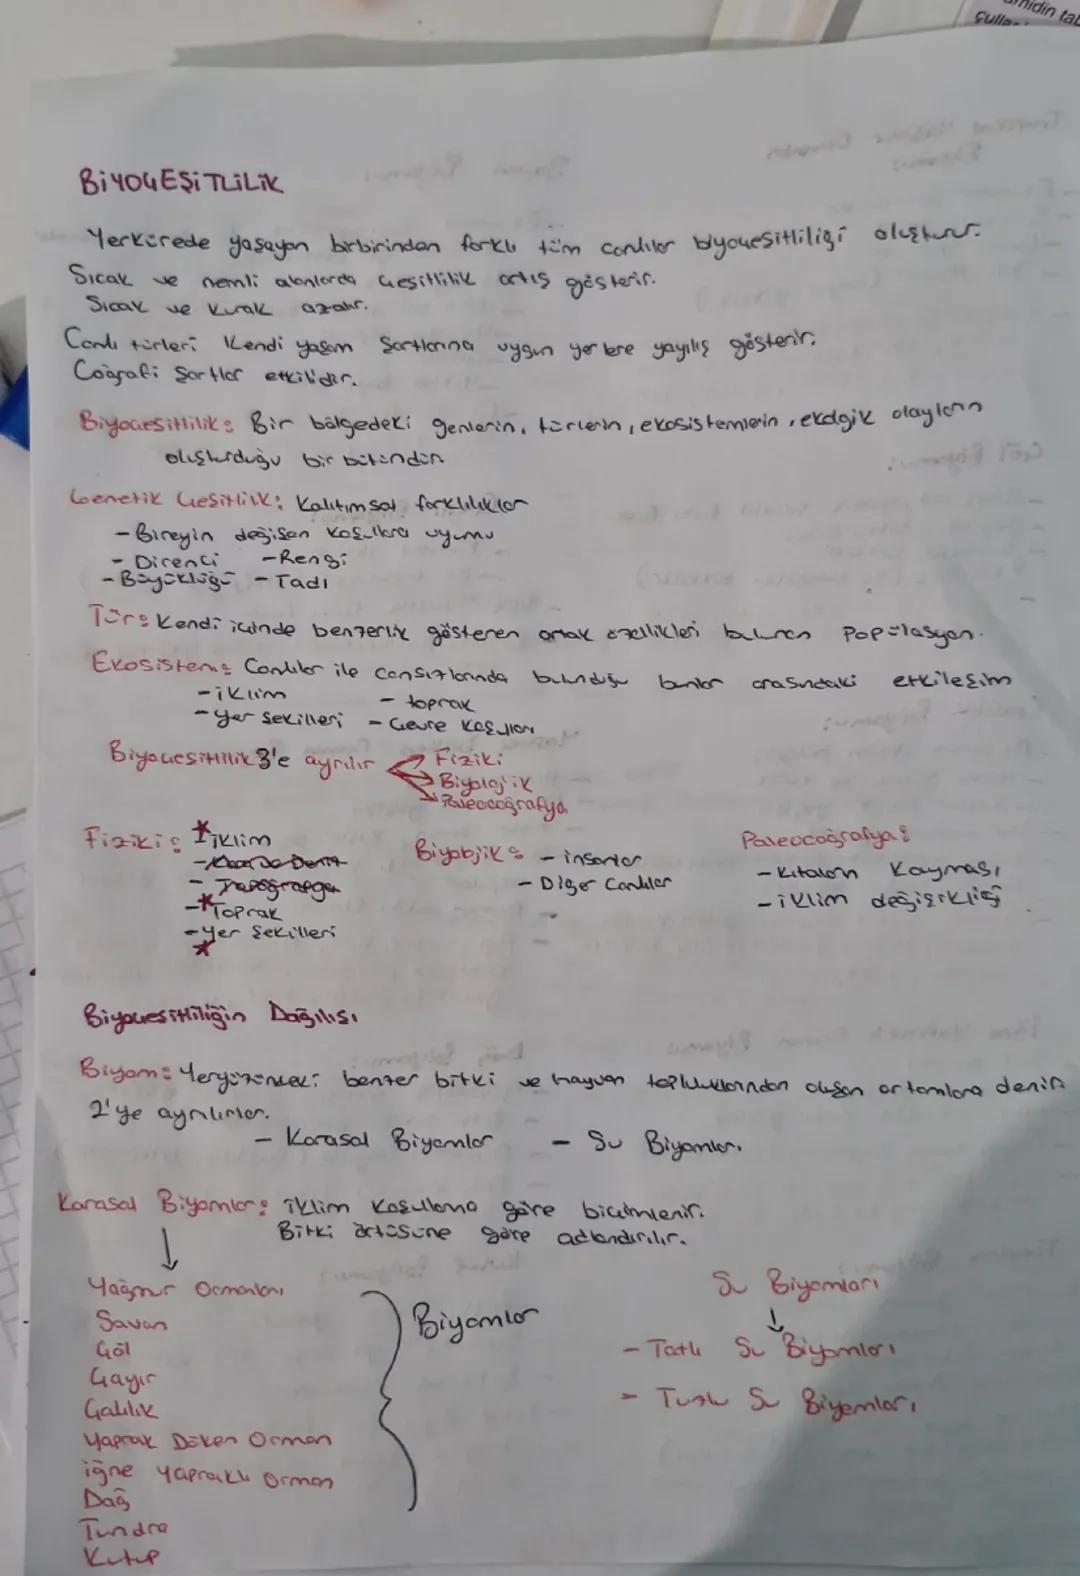 BİYOÇEŞİTLİLİK
Yerkürede yaşayan birbirinden farklı tüm canlılar biyoçeşitliliği oluşturur.
Sıcak ve nemli alanlarda çeşitlilik artış gösterir.
Sıcak ve kurak azalır.
Canlı türleri kendi yaşam şartlarına uygun yerlere yayılış gösterir.
Coğrafi şartlar etkilidir.
Biyoçeşitlilik: Bir bölgedeki genlerin, türlerin, ekosistemlerin, ekolojik olayların
oluşturduğu bir bütündür.
Genetik Çeşitlilik: Kalıtımsal farklılıklar
- Bireyin değişen koşullara uyumu
- Direnci - Rengi
- Büyüklüğü - Tadı
Tür: Kendi içinde benzerlik gösteren ortak özellikleri bulunan popülasyon.
Ekosistem: Canlılar ile cansızlarında bulunduğu bunlar arasındaki etkileşim
- iklim - toprak
- yer şekilleri - Çevre koşulları
Biyoçeşitlilik 3'e ayrılır Fiziki
Biyolojik
Paleocoğrafya
Fiziki: iklim Biyolojik: - insanlar Paleocoğrafya:
- Diğer Canlılar - Kıtaların Kayması
- Toprak - iklim değişikliği
- Yer Şekilleri
Biyoçeşitliliğin Dağılışı
Biyom: Yeryüzündeki benzer bitki ve hayvan topluluklarından oluşan ortamlara denir.
2'ye ayrılırlar.
- Karasal Biyomlar - Su Biyomları
Karasal Biyomlar: iklim koşullarına göre biçimlenir.
Bitki örtüsüne göre adlandırılır.
Yağmur Ormanları
Savan
Çöl
Çayır
Çalılık
Yaprak Döken Orman
iğne Yapraklı Orman
Dağ
Tundra
Kutup
Biyomlar
Su Biyomları
- Tatlı Su Biyomları
- Tuzlu Su Biyomları